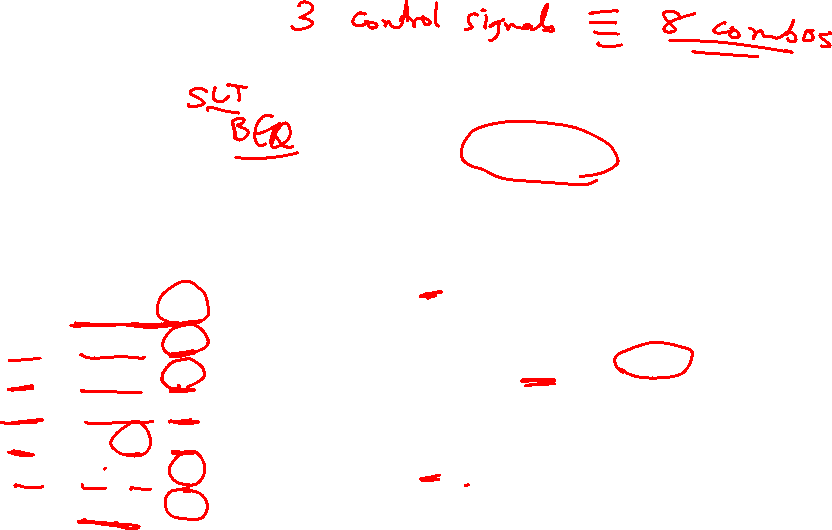 3 control signals ≡ 8 combos
SLT
BEQ